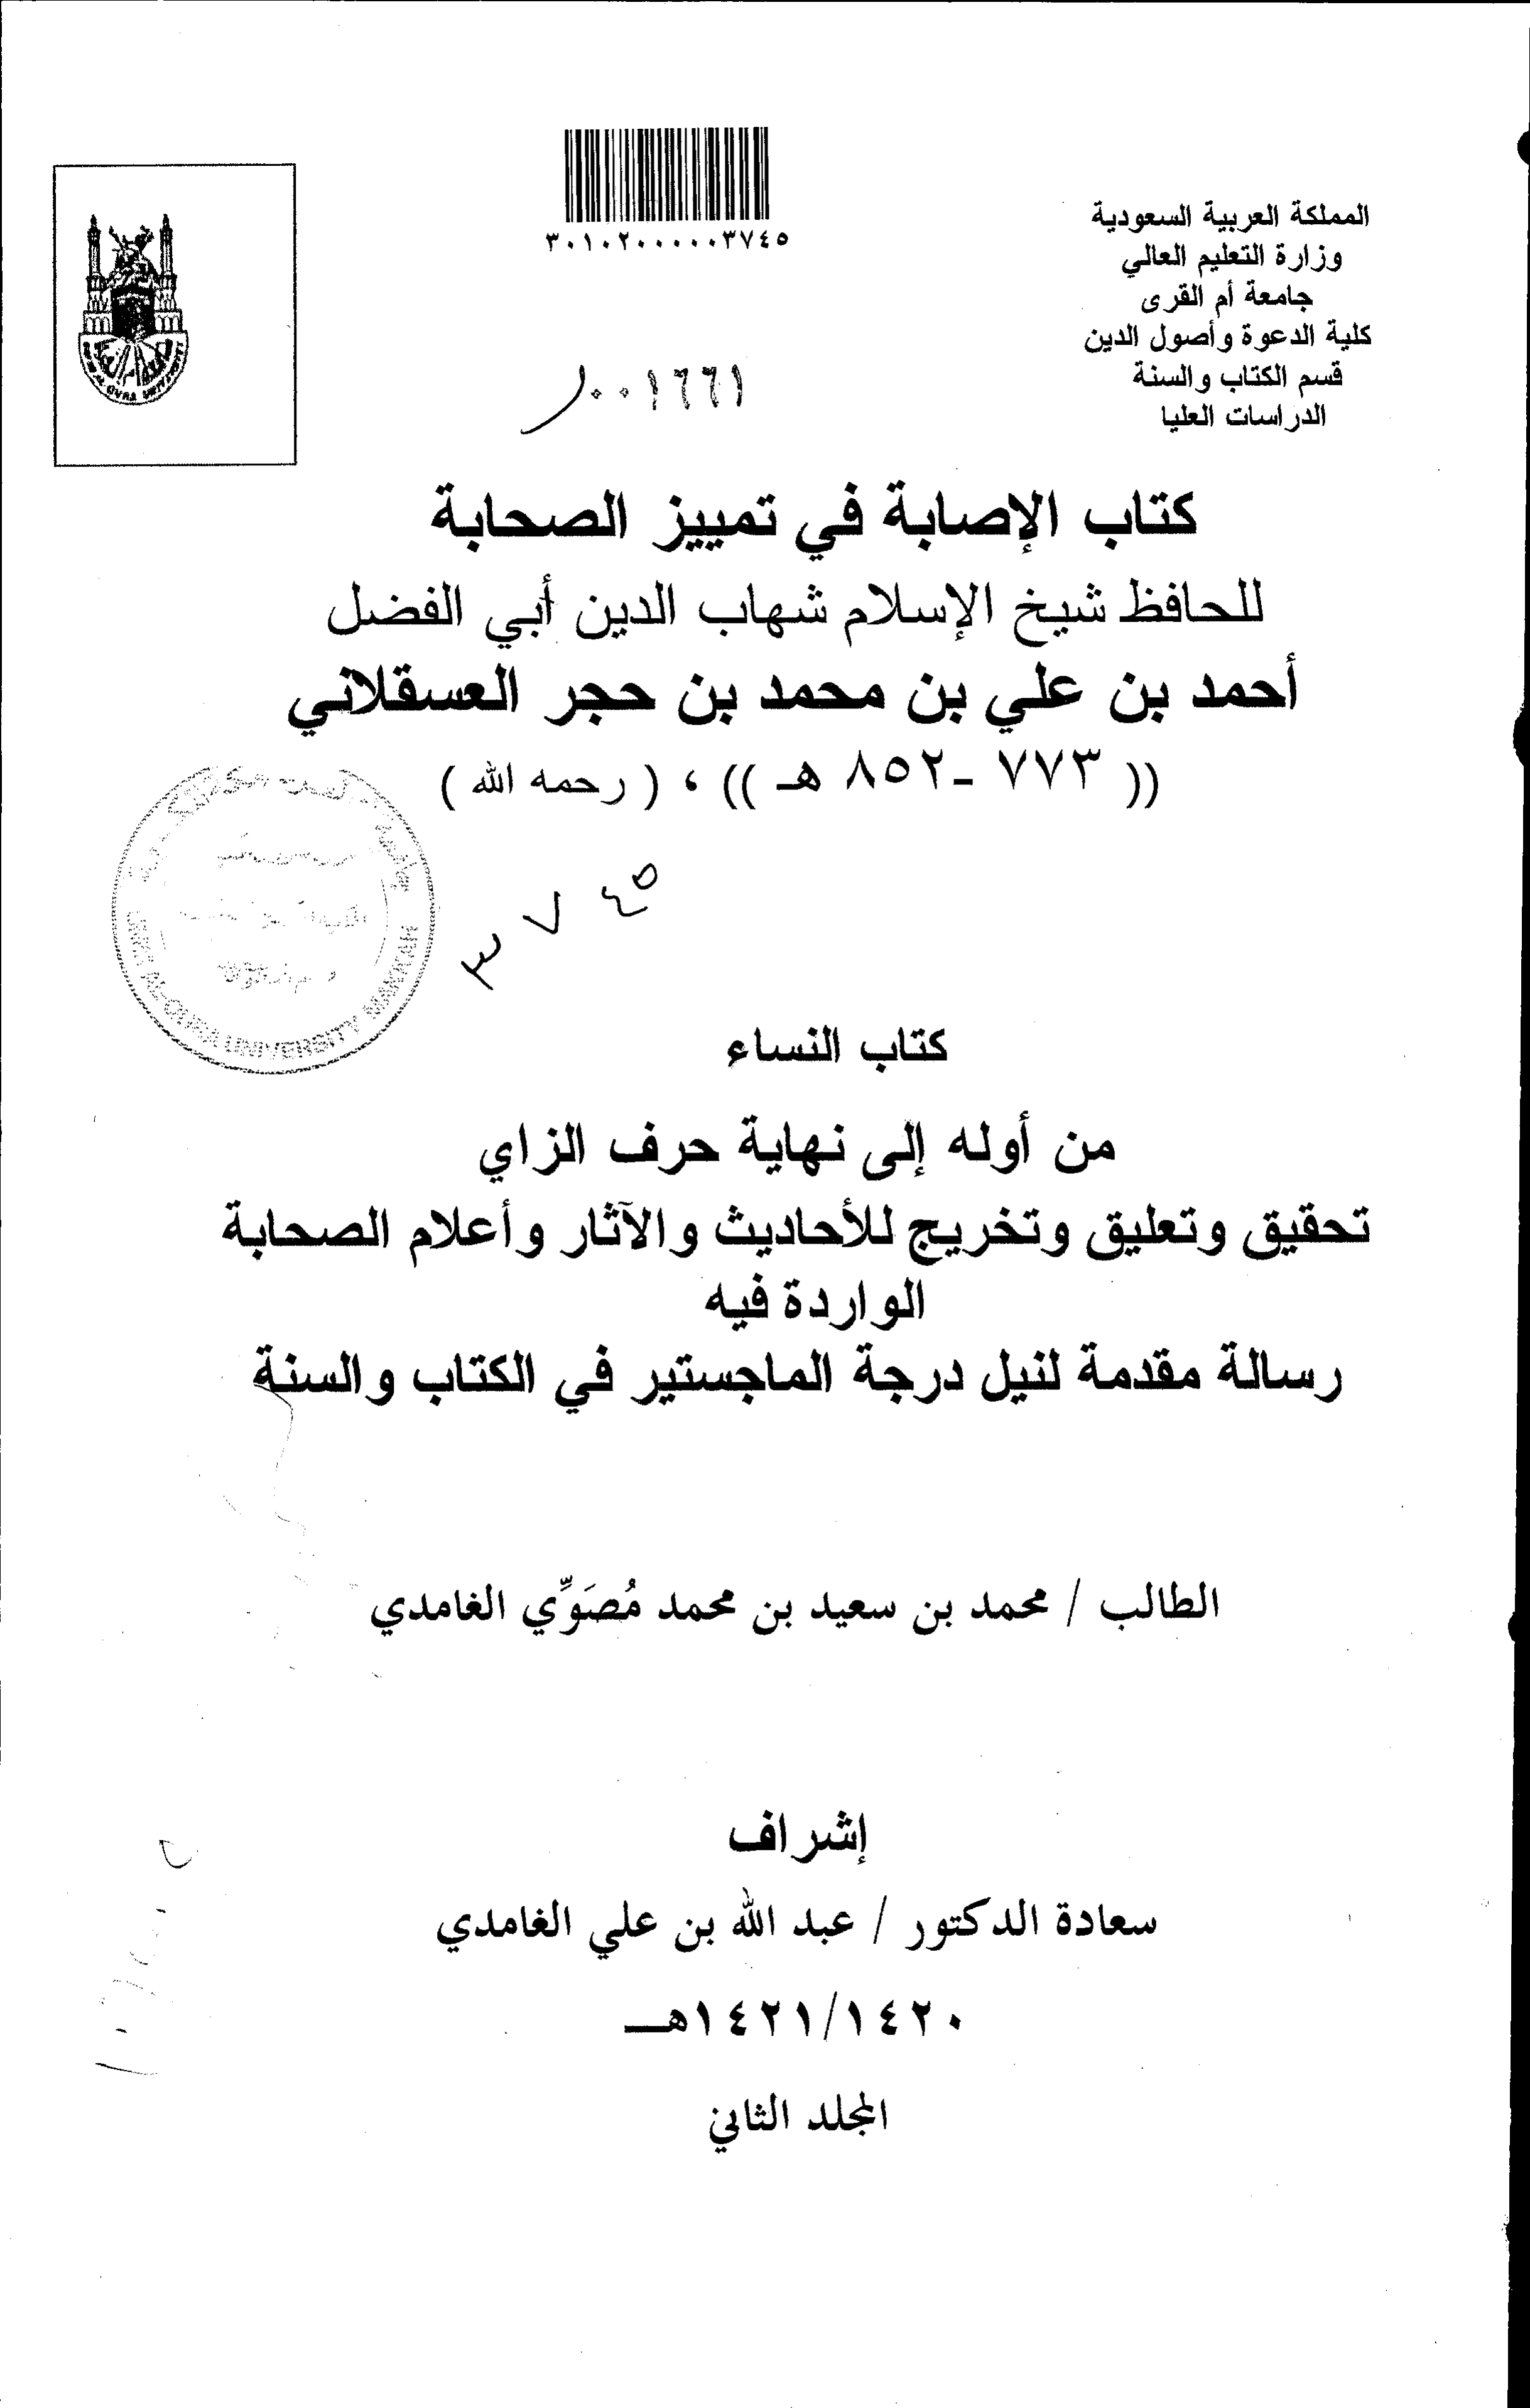 المملكة العربية السعودية
وزارة التعليم العالي
جامعة أم القرى
كلية الدعوة وأصول الدين
قسم الكتاب والسنة
الدراسات العليا
٣٠١٠٢٠٠٠٠٠٣٧٤٥
٠٠١٦٦١
كتاب الإصابة في تمييز الصحابة
للحافظ شيخ الإسلام شهاب الدين أبي الفضل
أحمد بن علي بن محمد بن حجر العسقلاني
(( ٧٧٣ -٨٥٢ هـ )) ، ( رحمه الله )
٣٧٤٥
UNIVERSITY
كتاب النساء
من أوله إلى نهاية حرف الزاي
تحقيق وتعليق وتخريج للأحاديث والآثار وأعلام الصحابة
الواردة فيه
رسالة مقدمة لنيل درجة الماجستير في الكتاب والسنة
الطالب / محمد بن سعيد بن محمد مُصَوِّي الغامدي
إشراف
سعادة الدكتور / عبد الله بن علي الغامدي
١٤٢١/١٤٢٠هـ
المجلد الثاني